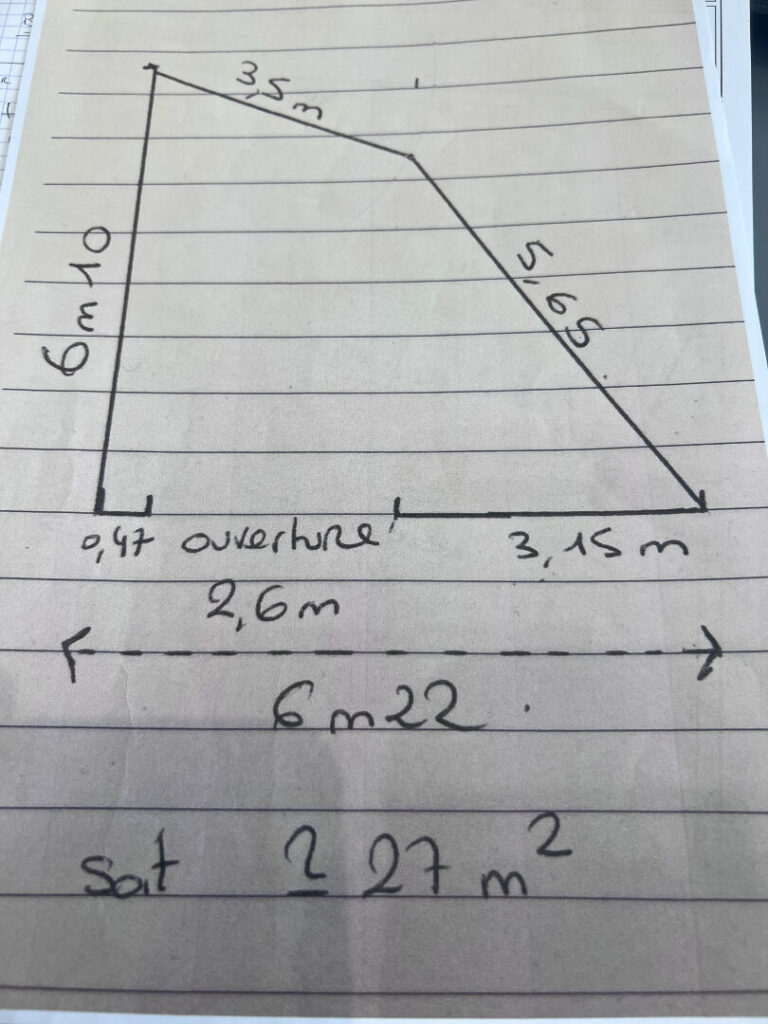 3,5 m
6 m 10
5,65
0,47 ouverture 3,15 m
2,6 m
6 m 22
Soit ± 27 m²